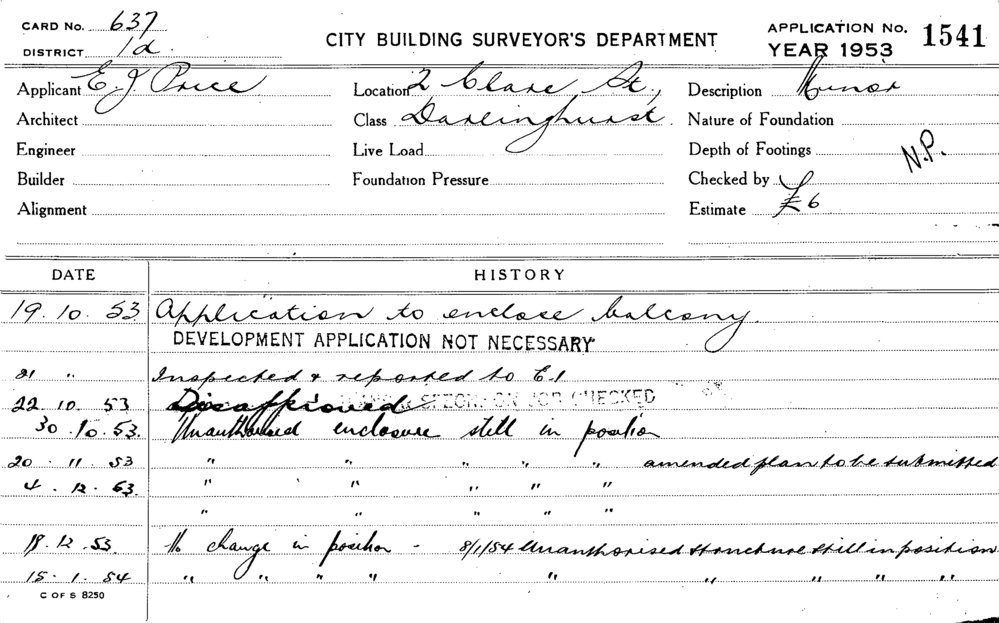 CARD No. 637
DISTRICT 1d.
CITY BUILDING SURVEYOR'S DEPARTMENT
APPLICATION No. 1541
YEAR 1953
Applicant E. J. Price
Location 2 Clare St.,
Description Minor
Architect
Class Darlinghurst
Nature of Foundation
Engineer
Live Load
Depth of Footings N.P.
Builder
Foundation Pressure
Checked by
Alignment
Estimate £6
DATE HISTORY
19. 10. 53 Application to enclose balcony.
DEVELOPMENT APPLICATION NOT NECESSARY
21 " Inspected & reported to C.I.
22. 10. 53 Disapproved ON JOB CHECKED
30. 10. 53. Unauthorised enclosure still in position
20. 11. 53 " " " " " amended plan to be submitted
4. 12. 53. " " " " "
" " " " "
18. 12. 53. No change in position - 8/1/54 Unauthorised structure still in position
15. 1. 54 " " " " " " " "
C OF S 8250